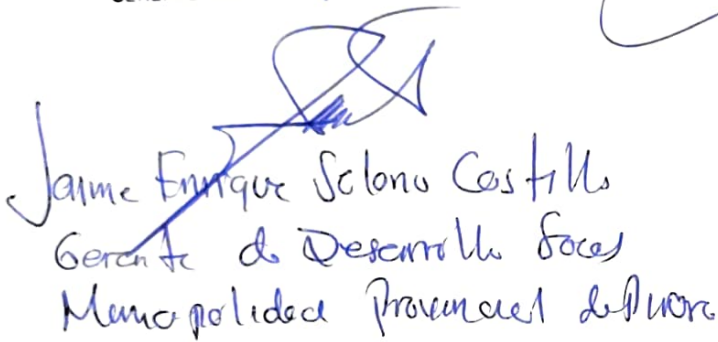 Jaime Enrique Solano Castillo
Gerente de Desarrollo Social
Municipalidad Provincial de Piura